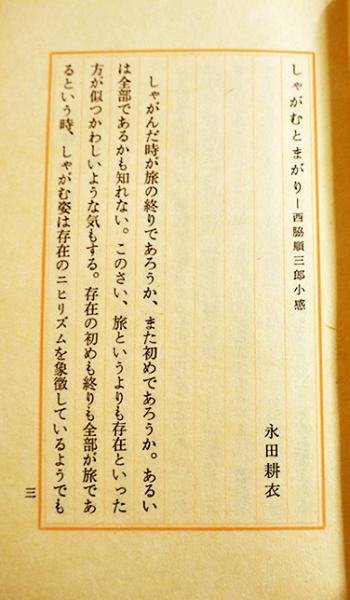 しゃがむとまがり―西脇順三郎小感
永田耕衣
しゃがんだ時が旅の終りであろうか、また初めであろうか。あるい
は全部であるかも知れない。このさい、旅というよりも存在といった
方が似つかわしいような気もする。存在の初めも終りも全部が旅であ
るという時、しゃがむ姿は存在のニヒリズムを象徴しているようでも
三